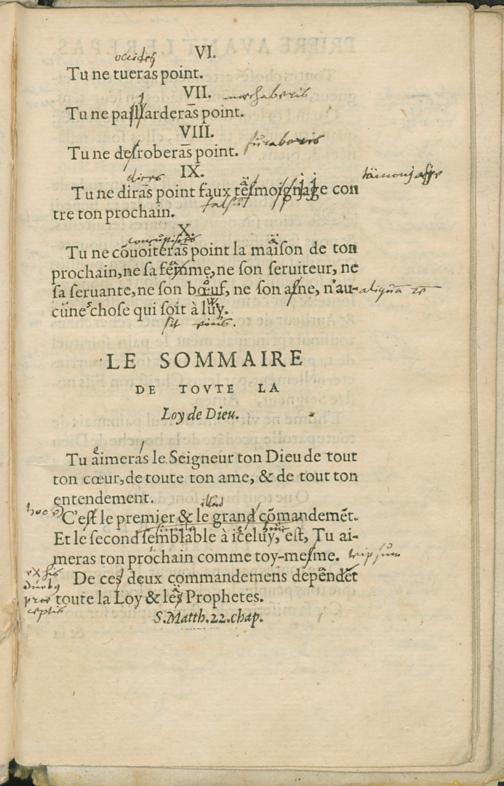 occides
VI.
Tu ne tueras point.
VII. mechaberis
Tu ne paſſarderas point.
VIII.
Tu ne deſroberas point. furaberis
dices
IX.
Tu ne diras point faux teſmoignage con
falsum
tre ton prochain.
X.
concupisces
Tu ne cōuoiteras point la maiſon de ton
prochain, ne ſa fēmme, ne ſon ſeruiteur, ne
ſa ſeruante, ne ſon bœuf, ne ſon aſne, n'au-
cune choſe qui ſoit à luy.
sit
LE SOMMAIRE
DE TOVTE LA
Loy de Dieu.
Tu aimeras le Seigneur ton Dieu de tout
ton cœur, de toute ton ame, & de tout ton
entendement.
C'eſt le premier & le grand cōmandemēt.
Et le second ſemblable à iceluy, eſt, Tu ai-
meras ton prochain comme toy-meſme. teipsum
De ces deux commandemens dependēt
toute la Loy & les Prophetes.
S. Matth. 22. chap.